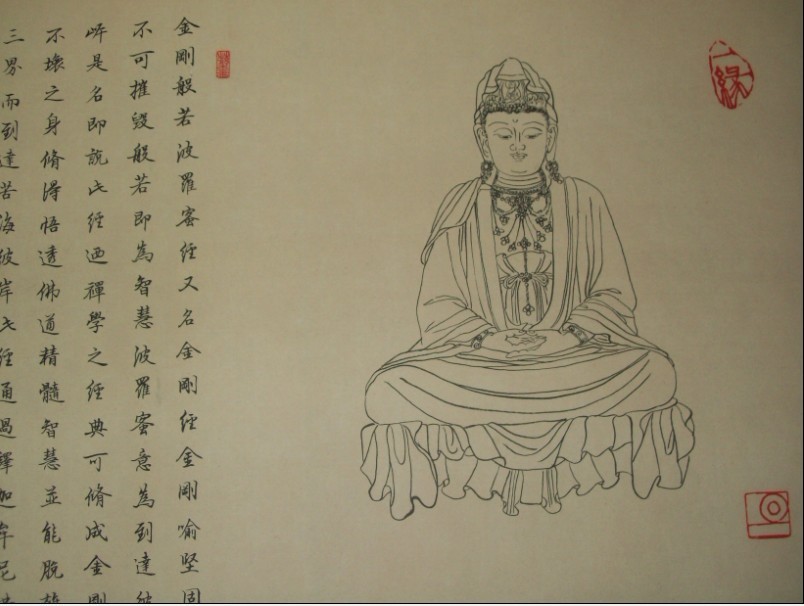 緣
金剛般若波羅蜜經又名金剛經金剛喻堅固
不可摧毀般若即為智慧波羅蜜意為到達彼
岸是名即說此經迺禪學之經典可脩成金剛
不壞之身脩得悟透佛道精髓智慧並能脫
三界而到達苦海彼岸此經通過釋迦牟尼